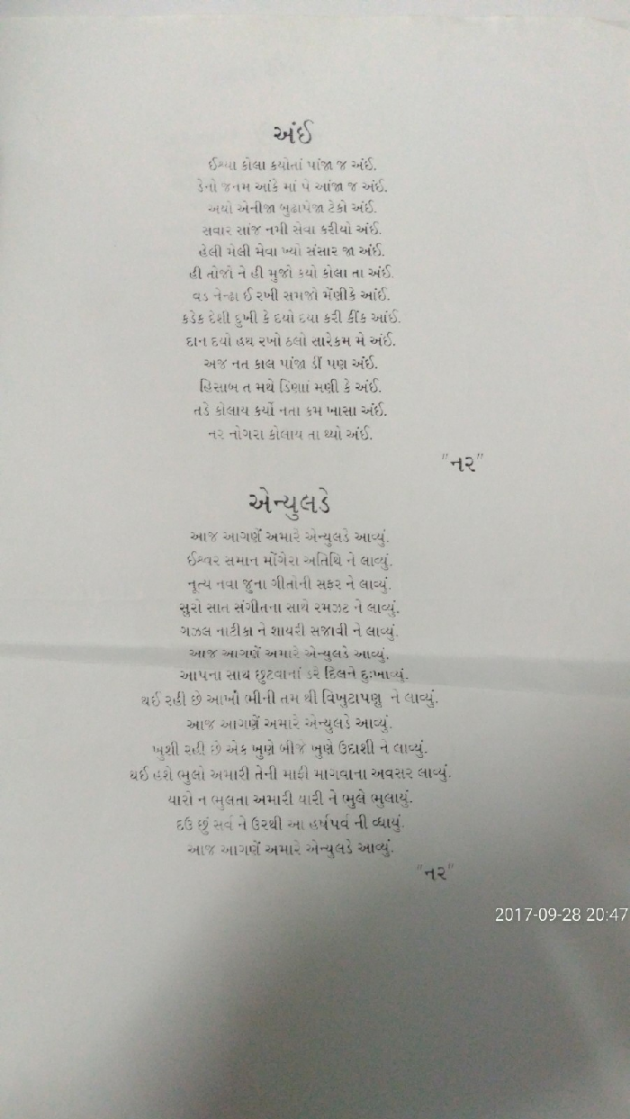 અંઈ
ઈશ્યા કોલા કયોતાં પાંજા જ અંઈ.
ડેનો જનમ આંકે માં પે આંજા જ અંઈ.
અયો એનીજા બુઢાપેજા ટેકો અંઈ.
સવાર સાંજ નમી સેવા કરીયો અંઈ.
હેલી મેલી મેવા ખ્યો સંસાર જા અંઈ.
હી તોજો ને હી મુજો કયો કોલા તા અંઈ.
વડ નેન્ઢા ઈ રખી સમજો મેંણીકે આંઈ.
કડેક દેશી દુખી કે દયો દયા કરી કીંક આંઈ.
દાન દયો હથ રખો ઠલો સારેકમ મે અંઈ.
અજ નત કાલ પાંજા ડીં પણ અંઈ.
હિસાબ ત મથે ડિણાં મણી કે અંઈ.
તડે કોલાય કર્યો નતા કમ ખાસા અંઈ.
નર નોગરા કોલાય તા થ્યો અંઈ.
"નર"
એન્યુલડે
આજ આગણેં અમારે એન્યુલડે આવ્યું.
ઈશ્વર સમાન મોંગેરા અતિથિ ને લાવ્યું.
નૂત્ય નવા જુના ગીતોની સફર ને લાવ્યું.
સુરો સાત સંગીતના સાથે રમઝટ ને લાવ્યું.
ગઝલ નાટીકા ને શાયરી સજાવી ને લાવ્યું.
આજ આગણેં અમારે એન્યુલડે આવ્યું.
આપના સાથ છુટવાનાં ડરે દિલને દુઃખાવ્યું.
થઈ રહી છે આખોં ભીની તમ થી વિખુટાપણુ ને લાવ્યું.
આજ આગણેં અમારે એન્યુલડે આવ્યું.
ખુશી રહી છે એક ખુણે બીજે ખુણે ઉદાશી ને લાવ્યું.
થઈ હશે ભુલો અમારી તેની માફી માગવાના અવસર લાવ્યું.
યારો ન ભુલતા અમારી યારી ને ભુલે ભુલાયું.
દઉ છું સર્વ ને ઉરથી આ હર્ષપર્વ ની વ્ધાયું.
આજ આગણેં અમારે એન્યુલડે આવ્યું.
"નર"
2017-09-28 20:47